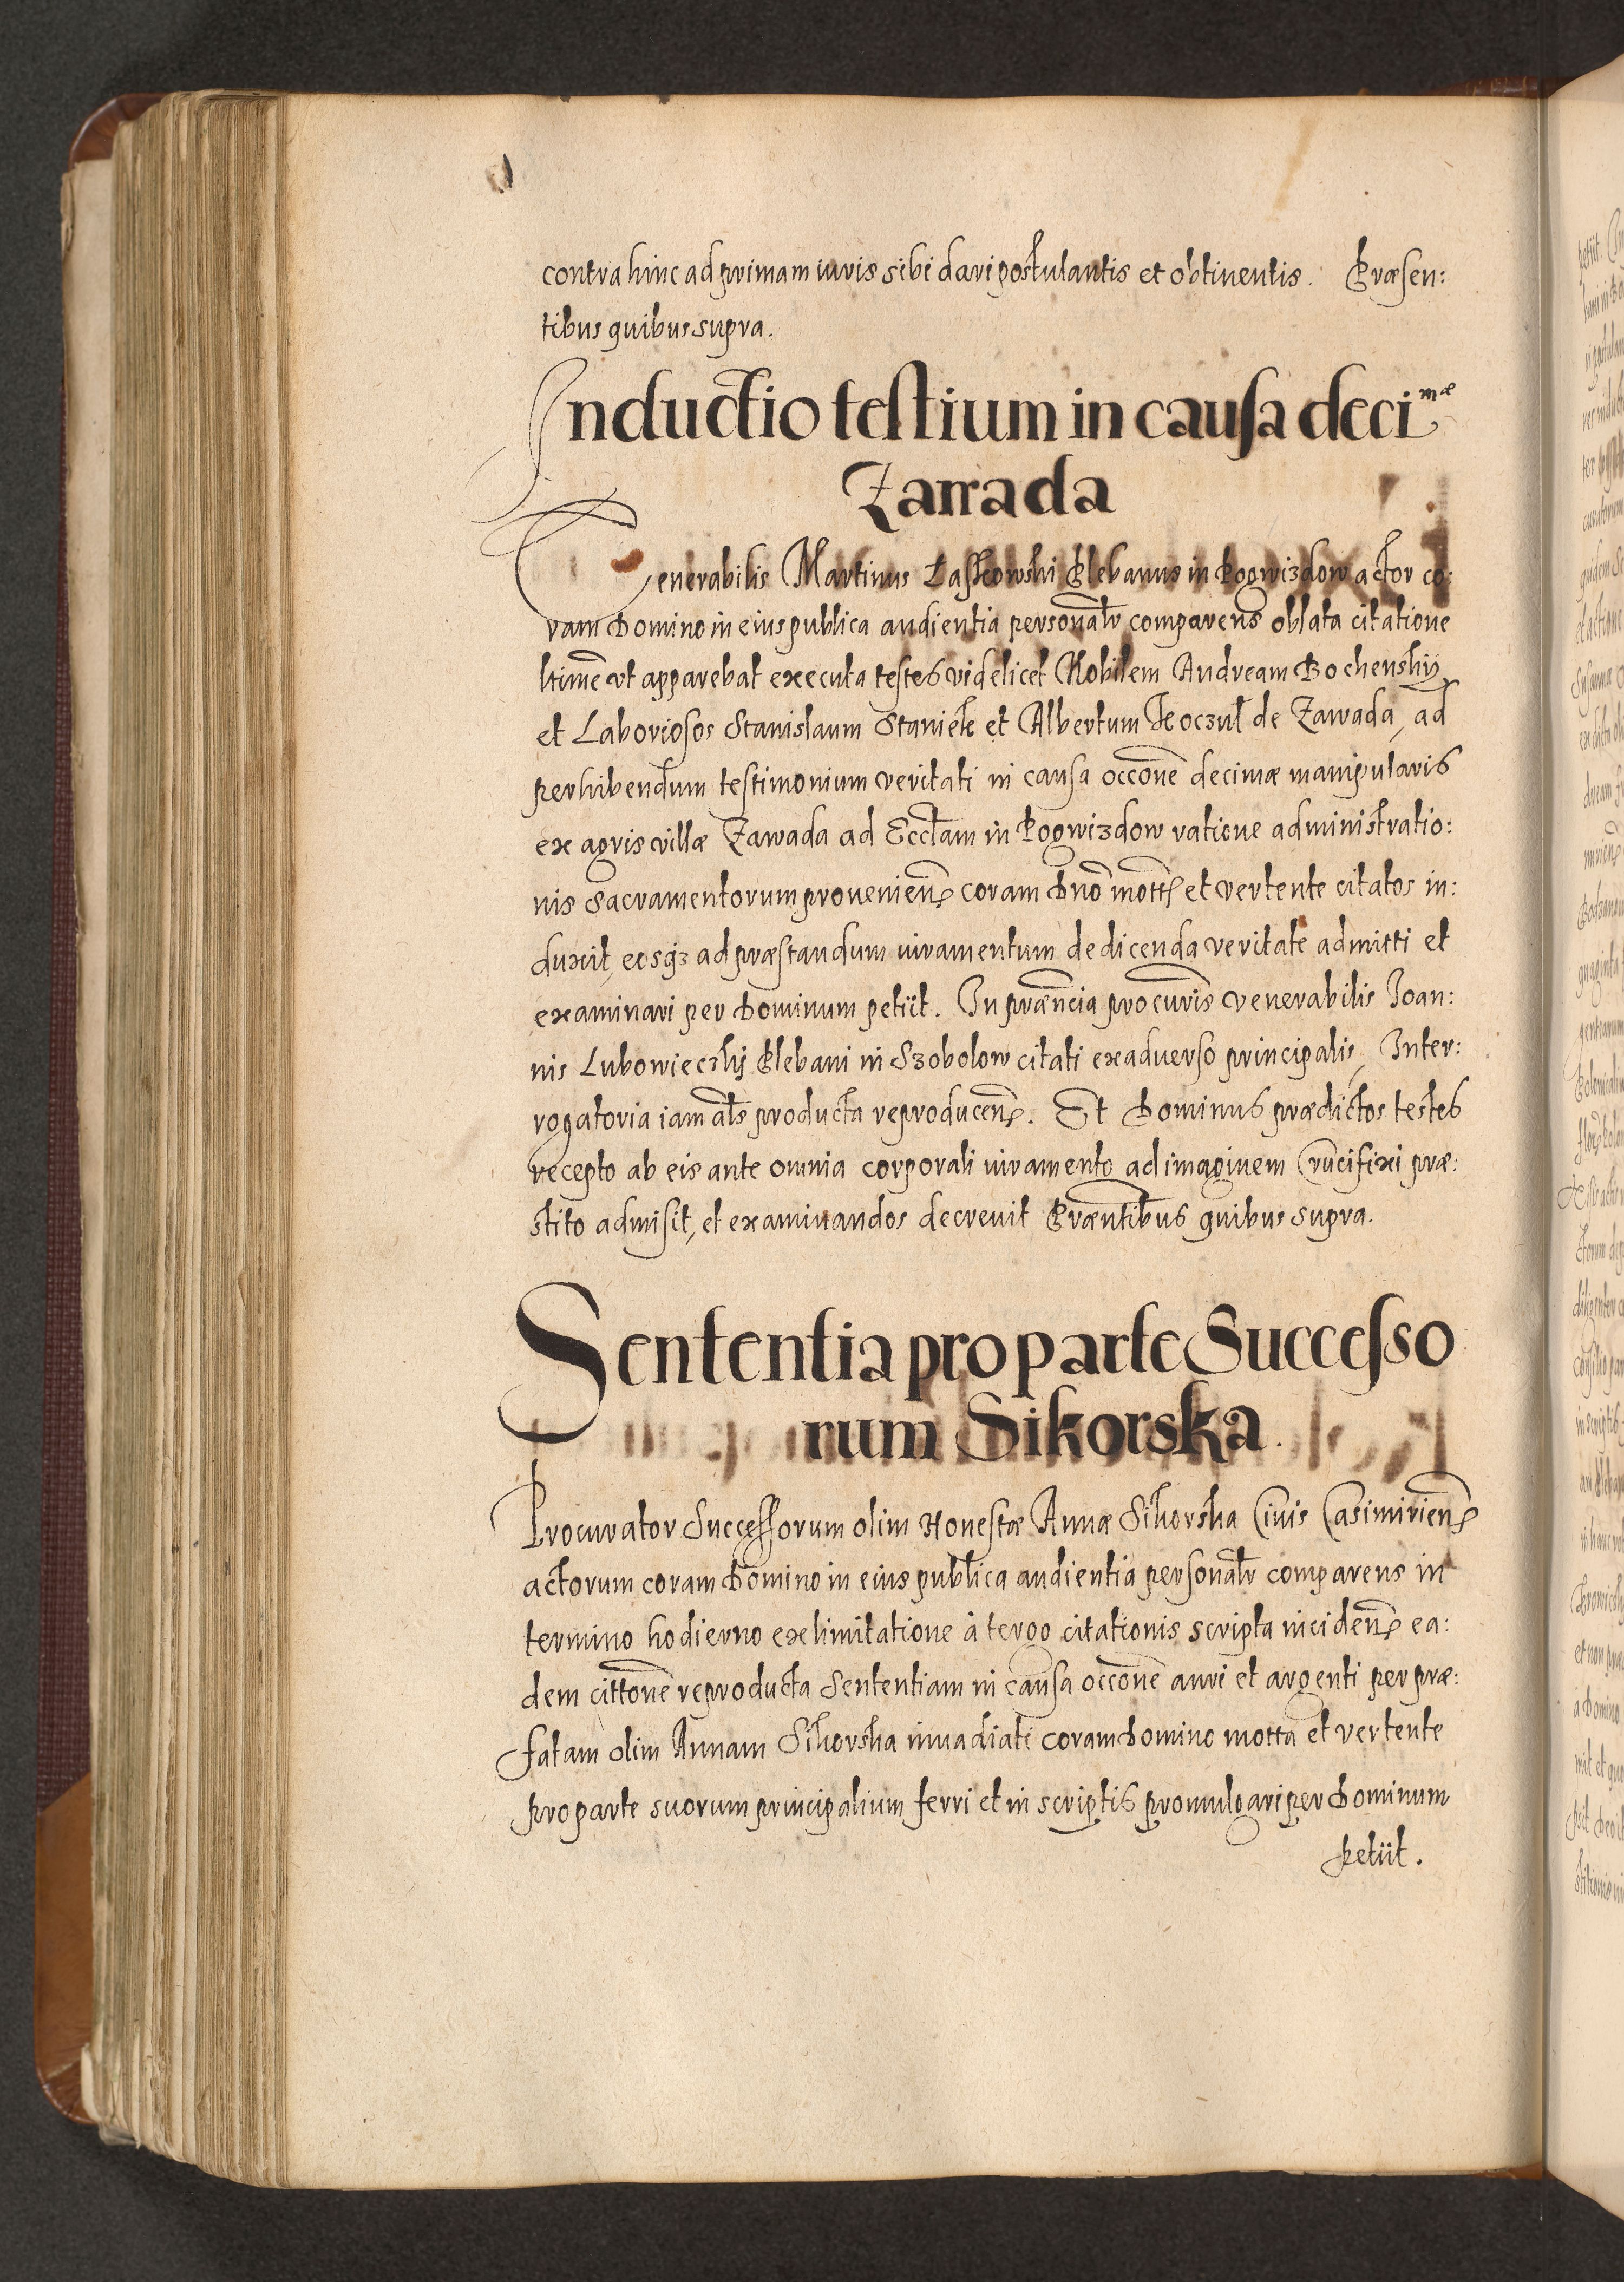 contra hinc ad primam iuris sibi dari postulantis et obtinentis. Præsen:
tibus quibus supra.
Inductio testium in causa deciᵐᵉ
Zawada
Venerabilis Martinus Laskowski Plebanus in Pogwizdow actor co:
ram Domino in eius publica audientia personalr̄ comparens oblata citatione
ltime ut apparebat executa testes videlicet Nobilem Andream Bochenskij
et Laboriosos Stanislaum Staniek et Albertum Koczul de Zawada, ad
perhibendum testimonium veritati in causa occōne decimæ manipularis
ex agris villæ Zawada ad Eccl̄am in Pogwizdow ratione administratio:
nis Sacramentorum prouenien̄ coram Dno mott̄ et vertente citatos in:
duxit, eosq3 ad præstandum iuramentum de dicenda veritate admitti et
examinari per Dominum petiit. In præn̄cia procuris̄ Venerabilis Joan:
nis Lubowieczkij Plebani in Szobolow citati exaduerso principalis, Inter:
rogatoria iam al̄s producta reproducen̄. Et Dominus prædictos testes
recepto ab eis ante omnia corporali iuramento ad imaginem Crucifixi præ:
stito admisit, et examinandos decreuit Præntibus quibus supra.
Sententia pro parte Successo
rum Sikorska.
Procurator Successorum olim Honestæ Annæ Sikorska Ciuis Casimirien̄
actorum coram Domino in eius publica audientia personalr̄ comparens in
termino hodierno ex limitatione à tergo citationis scripta inciden̄ ea:
dem cittōne reproducta Sententiam in causa occōne auri et argenti per præ:
fatam olim Annam Sikorska inuadiati coram Domino motta et vertente
pro parte suorum principalium ferri et in scriptis promulgari per Dominum
petiit.